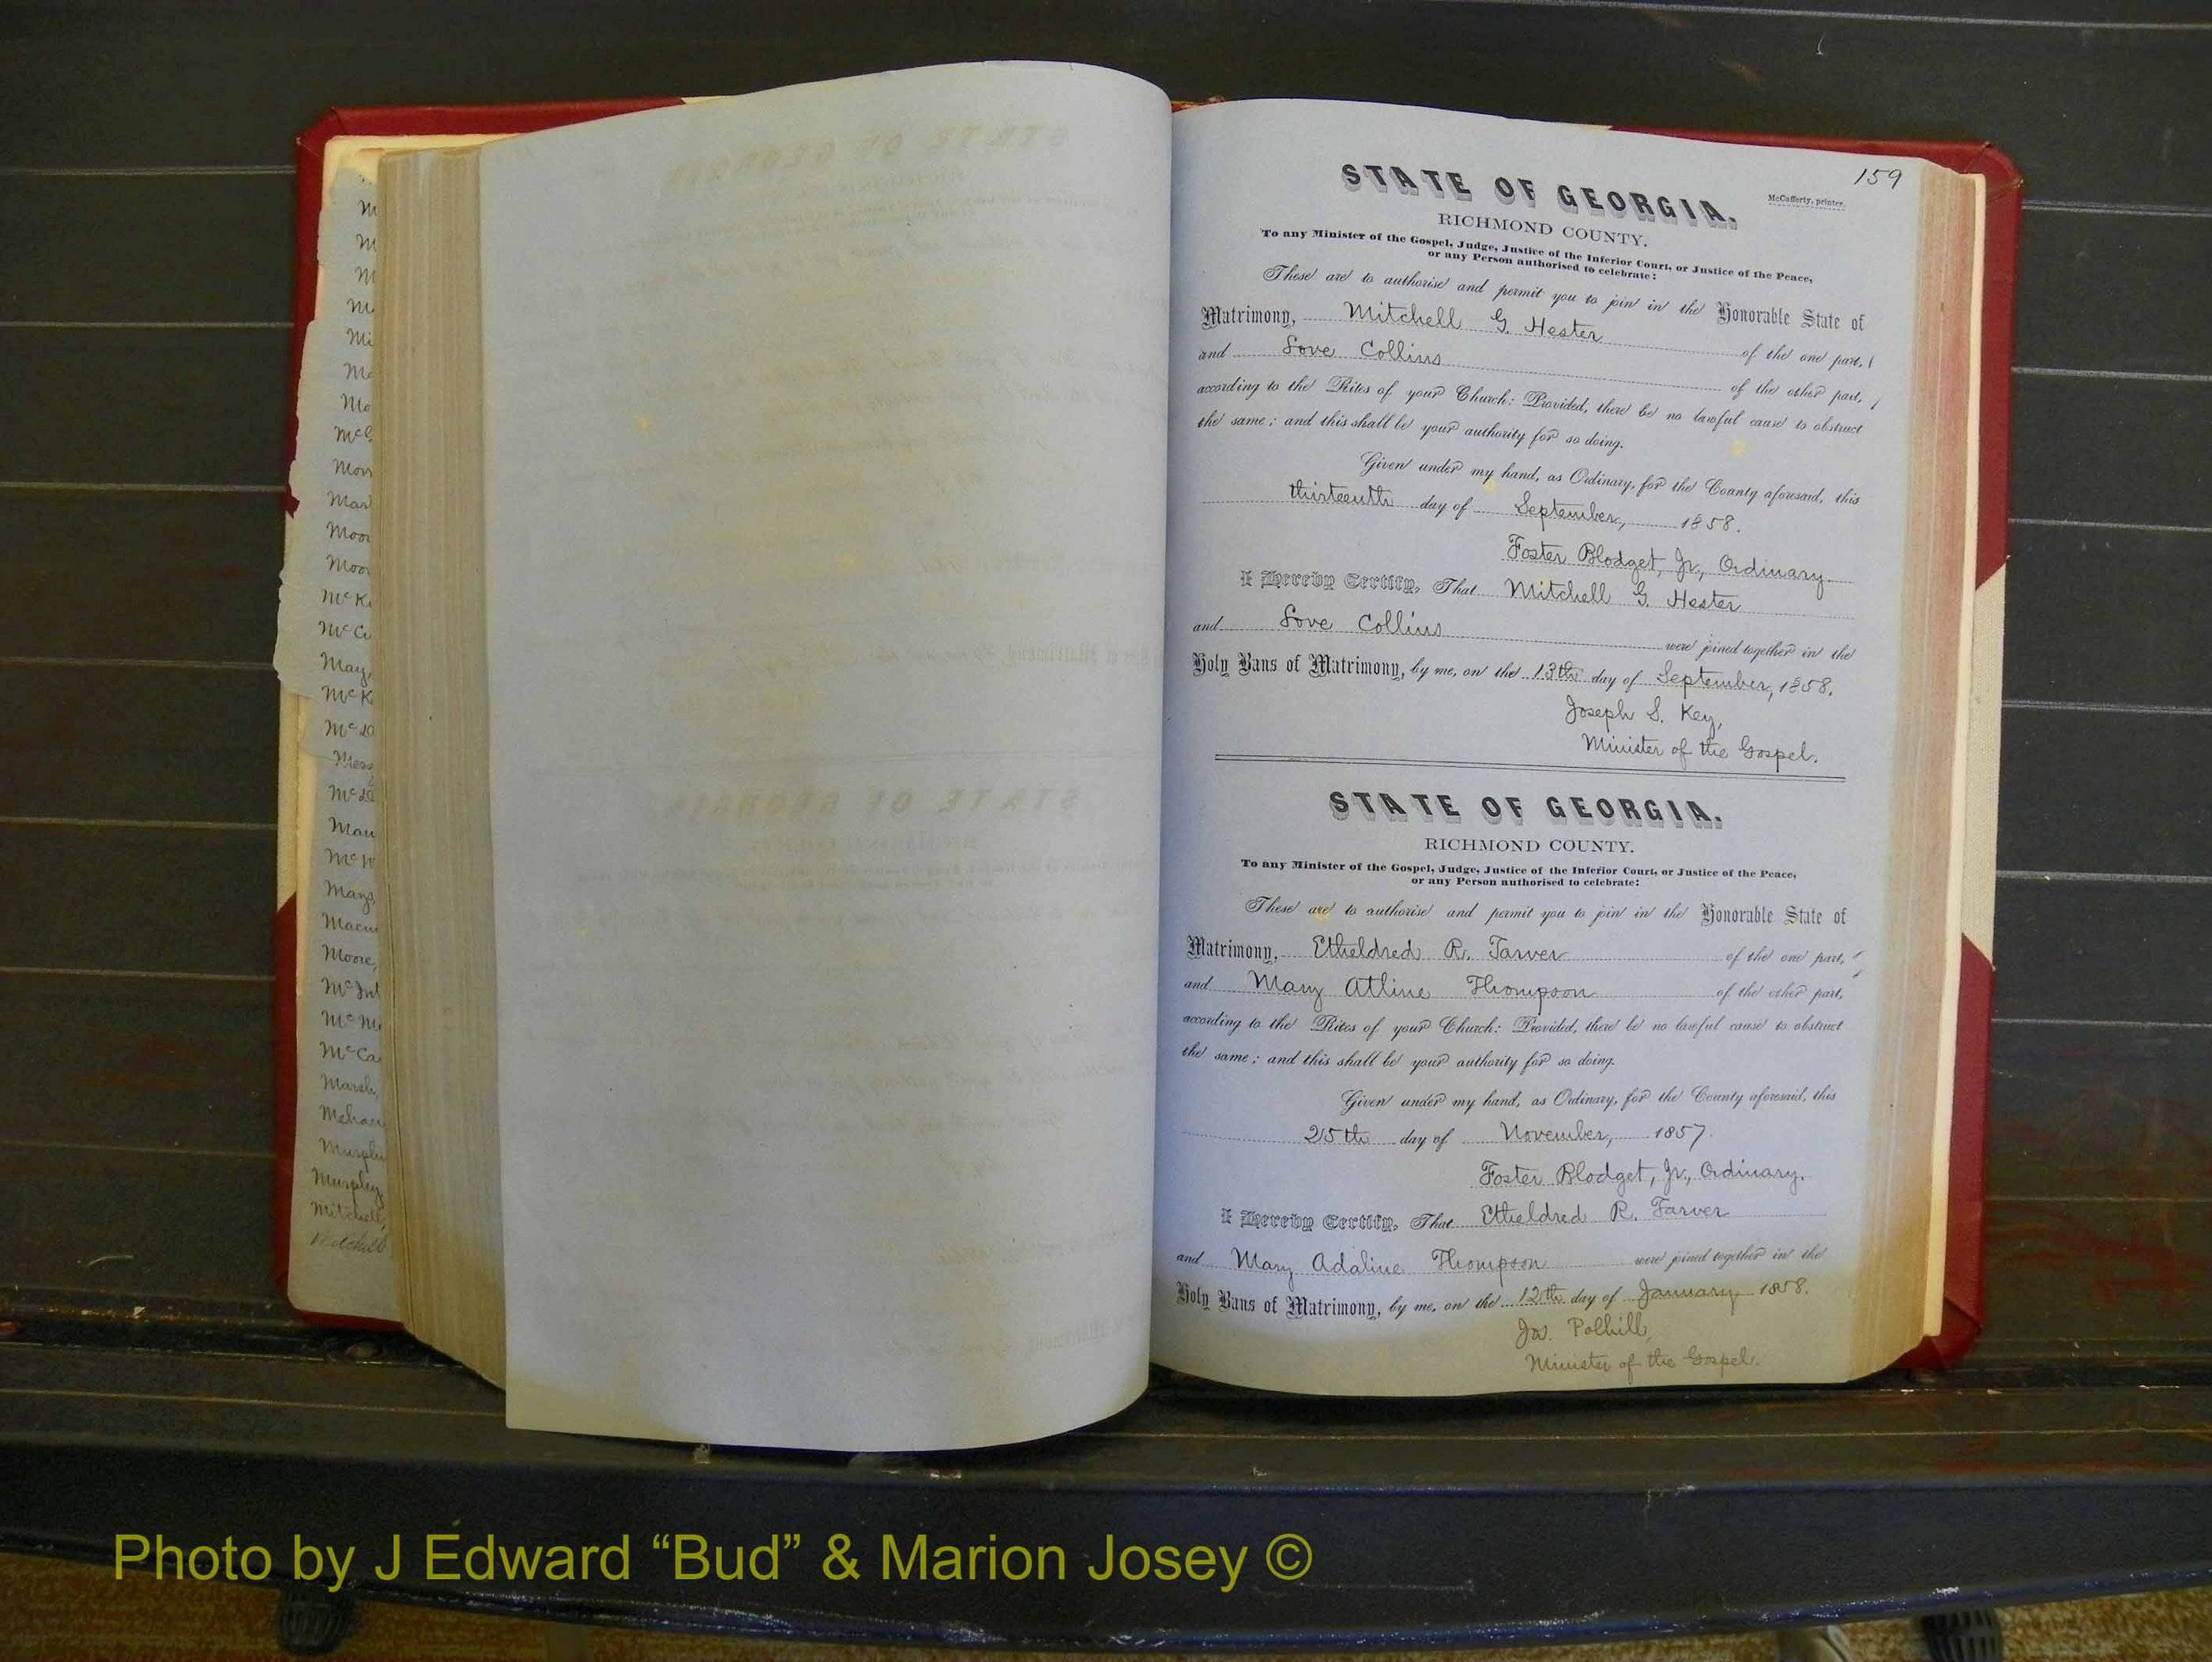 M
M
M
M
Mi
Mo
Mo
McG
Morr
Mar
Moo
Moo
McK
McC
May,
McK
McD
Mess
McD
Mau
McW
Mays,
Macu
Moore,
McInt
McM
McCa
Marsh,
Mehar
Murphy
Murphy,
Mitchell,
Mitchell
159
McCafferty, printer.
STATE OF GEORGIA.
RICHMOND COUNTY.
To any Minister of the Gospel, Judge, Justice of the Inferior Court, or Justice of the Peace,
or any Person authorised to celebrate:
These are to authorise and permit you to join in the Honorable State of
Matrimony, Mitchell G. Hester of the one part,
and Love Collins of the other part,
according to the Rites of your Church: Provided, there be no lawful cause to obstruct
the same; and this shall be your authority for so doing.
Given under my hand, as Ordinary, for the County aforesaid, this
thirteenth day of September, 1858.
Foster Blodget, Jr., Ordinary.
I Hereby Certify, That Mitchell G. Hester
and Love Collins were joined together in the
Holy Bans of Matrimony, by me, on the 13th day of September, 1858.
Joseph S. Key,
Minister of the Gospel.
STATE OF GEORGIA.
RICHMOND COUNTY.
To any Minister of the Gospel, Judge, Justice of the Inferior Court, or Justice of the Peace,
or any Person authorised to celebrate:
These are to authorise and permit you to join in the Honorable State of
Matrimony, Etheldred R. Tarver of the one part,
and Mary Atline Thompson of the other part,
according to the Rites of your Church: Provided, there be no lawful cause to obstruct
the same; and this shall be your authority for so doing.
Given under my hand, as Ordinary, for the County aforesaid, this
25th day of November, 1857.
Foster Blodget, Jr., Ordinary.
I Hereby Certify, That Etheldred R. Tarver
and Mary Adaline Thompson were joined together in the
Holy Bans of Matrimony, by me, on the 12th day of January 1858.
Jos. Polhill,
Minister of the Gospel.
Photo by J Edward “Bud” & Marion Josey ©